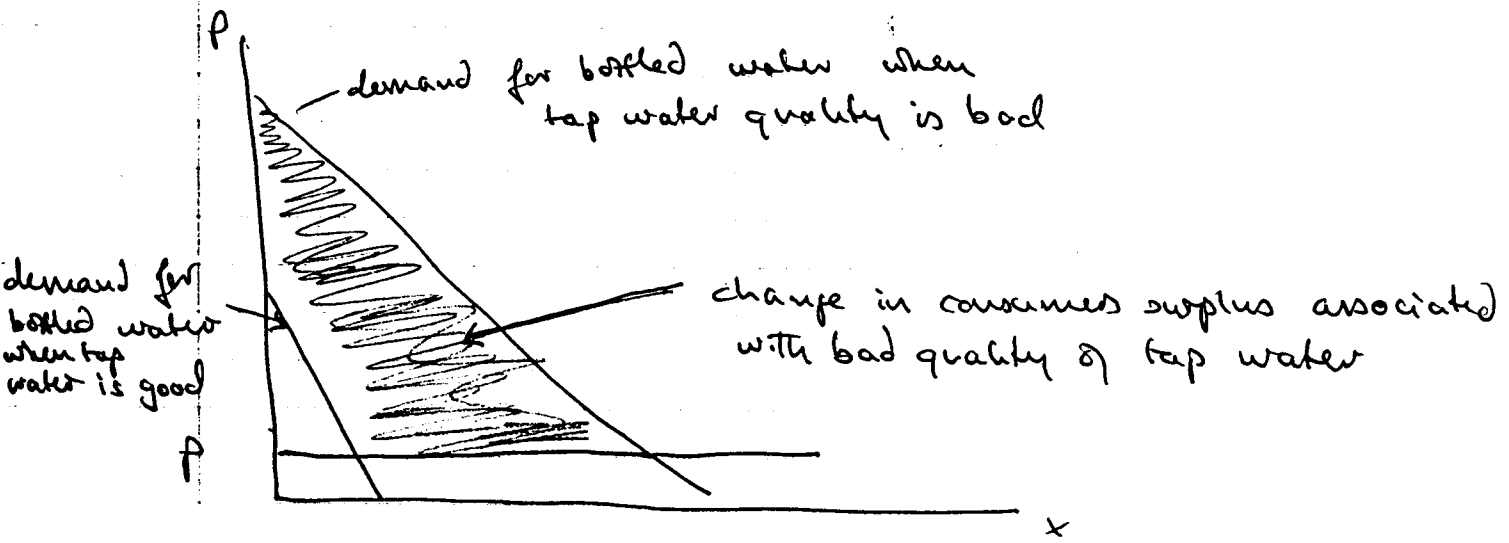 P
demand for bottled water when
tap water quality is bad
demand for
bottled water
when tap
water is good
change in consumers surplus associated
with bad quality of tap water
P
x